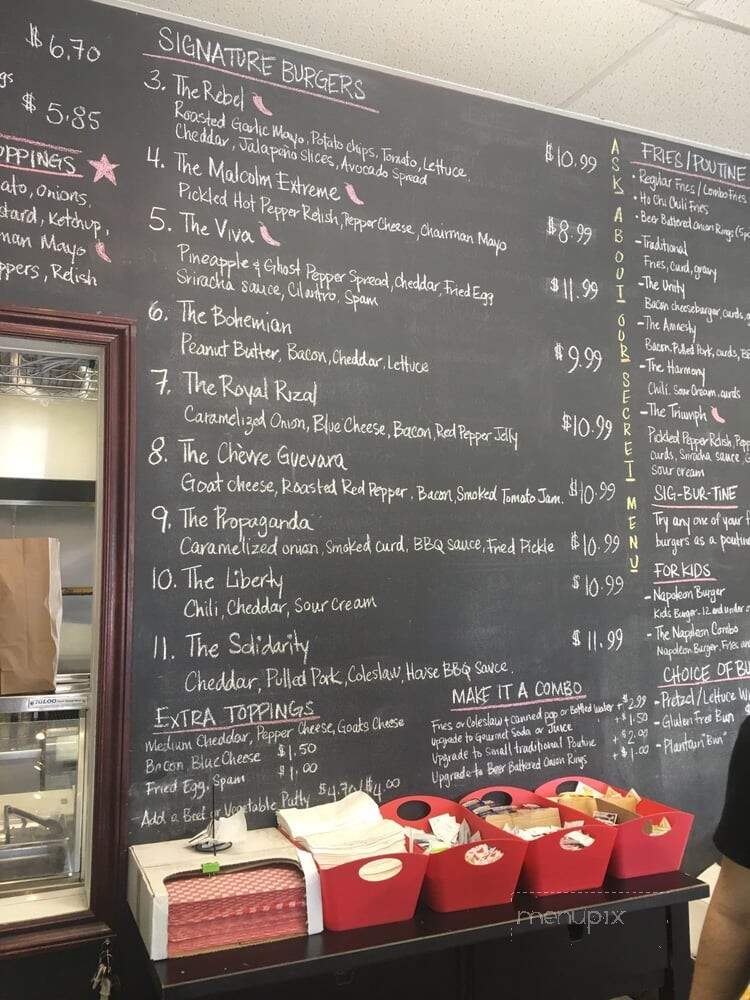 $6.70
gs
$5.85
OPPINGS
ato, onions,
stard, Ketchup,
man Mayo
ppers, Relish
SIGNATURE BURGERS
3. The Rebel
Roasted Garlic Mayo, Potato chips, Tomato, Lettuce,
Cheddar, Jalapaño slices, Avocado Spread
$10.99
4. The Malcolm Extreme
Pickled Hot Pepper Relish, Pepper Cheese, Chairman Mayo
$8.99
5. The Viva
Pineapple & Ghost Pepper Spread, Cheddar, Fried Egg
Sriracha sauce, Cilantro, Spam
$11.99
6. The Bohemian
Peanut Butter, Bacon, Cheddar, Lettuce
$9.99
7. The Royal Rizal
Caramelized Onion, Blue Cheese, Bacon, Red Pepper Jelly
$10.99
8. The Chèvre Guevara
Goat cheese, Roasted Red Pepper, Bacon, Smoked Tomato Jam.
$10.99
9. The Propaganda
Caramelized onion, Smoked curd, BBQ sauce, Fried Pickle
$10.99
10. The Liberty
Chili, Cheddar, Sour Cream
$10.99
11. The Solidarity
Cheddar, Pulled Pork, Coleslaw, House BBQ Sauce.
$11.99
EXTRA TOPPINGS
Medium Cheddar, Pepper Cheese, Goats Cheese
Bacon, Blue Cheese $1.50
Fried Egg, Spam $1.00
- Add a Beef or Vegetable Patty $4.70/$4.00
MAKE IT A COMBO
Fries or Coleslaw + canned pop or Bottled water +$2.99
upgrade to Gourmet Soda or Juice +$1.50
Upgrade to Small traditional Poutine +$2.00
Upgrade to Beer Battered Onion Rings +$1.00
ASK ABOUT OUR SECRET MENU
FRIES/POUTINE
• Regular Fries / Combo Fries
• Ho Chi Chili Fries
• Beer Battered Onion Rings (5pc
- Traditional
Fries, curd, gravy
- The Unity
Bacon cheeseburger, curds,
- The Amnesty
Bacon, Pulled Pork, curds, BB
- The Harmony
Chili, Sour Cream, curds
- The Triumph
Pickled Pepper Relish, Pepp
curds, Sriracha sauce,
Sour cream
SIG-BUR-TINE
Try any one of your f
burgers as a poutine
FOR KIDS
- Napoleon Burger
Kids Burger - 12 and under
- The Napoleon Combo
Napoleon Burger, Fries an
CHOICE OF BU
- Pretzel / Lettuce W
- Gluten Free Bun $
- Plantain "Bun"
menupix